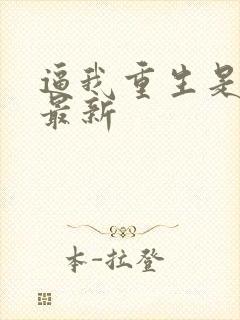 逼我重生是
最新
本-拉登